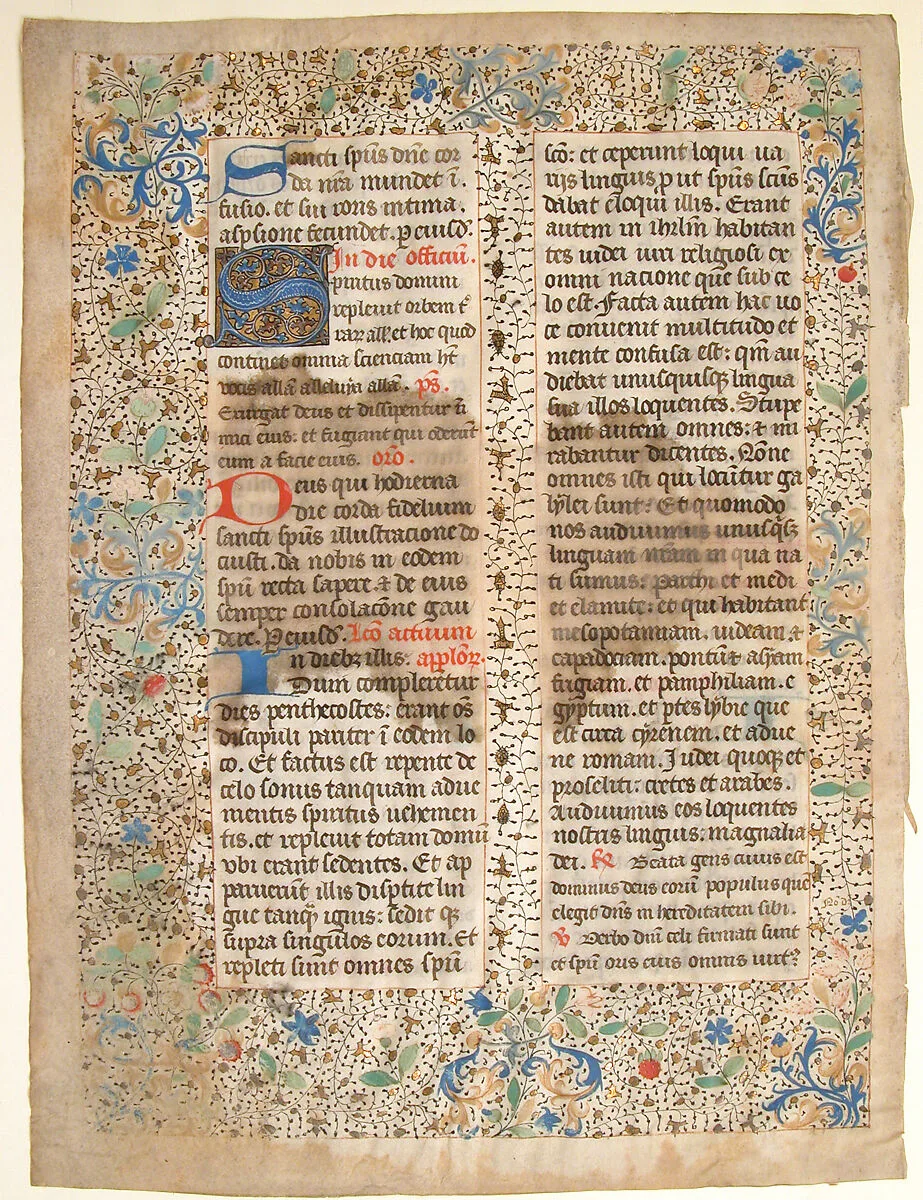 Sancti spūs dn̄e cor
da nr̄a mundet ī.
fusio. et sui roris intima
asp̄sione fecundet. p eiusd̄.
In die officiū.
Spiritus domini
repleuit orbem t̄
raꝝ all̄. et hoc quod
continet omnia scienciam ht̄
vocis allā alleluia allā. ps̄.
Exurgat deus et dissipentur in̄
mici eius: et fugiant qui oderūt
eum a facie eius. orō.
Deus qui hodierna
die corda fidelium
sancti spūs illustracione do
cuisti. da nobis in eodem
spū recta sapere. ⁊ de eius
semper consolacōne gau
dere. P eiusd̄. Lcō actuum
In diebꝫ illis. applōꝝ.
Dum complerētur
dies penthecostes: erant oēs
discipuli pariter ī eodem lo
co. Et factus est repente de
celo sonus tanquam adue
nientis spiritus uehemen
tis. et repleuit totam domū
vbi erant sedentes. Et ap
paruerūt illis disptite lin
gue tanq̄ ignis: sedit qꝫ
supra singulos eorum. Et
repleti sunt omnes spū
scō: et ceperunt loqui ua
rijs linguis ꝓ ut spūs scūs
dabat eloqui illis. Erant
autem in ihrlm̄ habitan
tes iudei uiri religiosi ex
omni nacione que sub ce
lo est. Facta autem hac uo
ce conuenit multitudo et
mente confusa est: qm̄ au
diebat unusquisqꝫ lingua
sua illos loquentes. Stupe
bant autem omnes: ⁊ mi
rabantur dicentes. Nōne
omnes isti qui locūtur ga
lylei sunt: Et quomodo
nos audiuimus unusqꝫ
linguam nr̄am in qua na
ti sumus: Parthi et medi
et elamite: et qui habitant
mesopotamiam. iudeam ⁊
capadociam. pontū ⁊ asyam
frigiam. et pamphiliam. e
gyptum. et ptes lybie que
est circa cyrenem. et adue
ne romani. Judei quoqꝫ et
proseliti: cretes et arabes.
Audiuimus eos loquentes
nostris linguis: magnalia
dei. R Beata gens cuius est
dominus deus eorū populus quē
elegit dn̄s in hereditatem sibi.
V Verbo dn̄i celi firmati sunt
et spū oris eius omnis uirt⁹